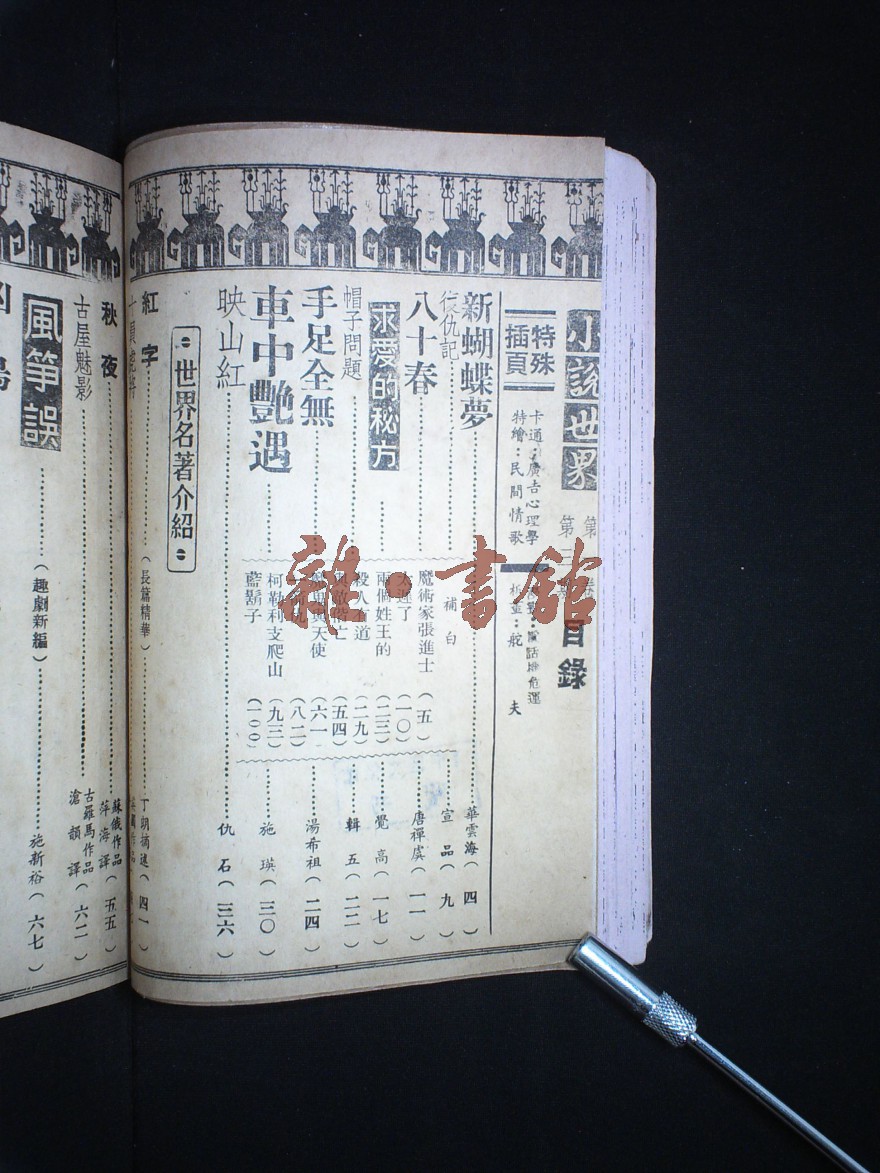 小說世界
目錄
特殊插頁
卡通：廣告心理學
特繪：民間情歌
舵夫
新蝴蝶夢 華雲海（四）
復仇記 宣品（九）
八十春 唐禪虞（一一）
求愛的秘方 覺高（一七）
帽子問題 輯五（二二）
手足全無 湯希祖（二四）
車中艷遇 施瑛（三〇）
映山紅 仇石（三六）
補白
魔術家張進士（五）
太遲了（一〇）
兩個姓王的（二三）
殺人有道（二九）
（五四）
天使（六一）
（八二）
柯勒利支爬山（九三）
藍鬍子（一〇〇）
世界名著介紹
紅字（長篇精華） 丁朔摘述（四一）
秋夜 蘇俄作品 萍海譯（五五）
古屋魅影 古羅馬作品 滄韻譯（六二）
風箏誤（趣劇新編） 施新裕（六七）
雒·書館